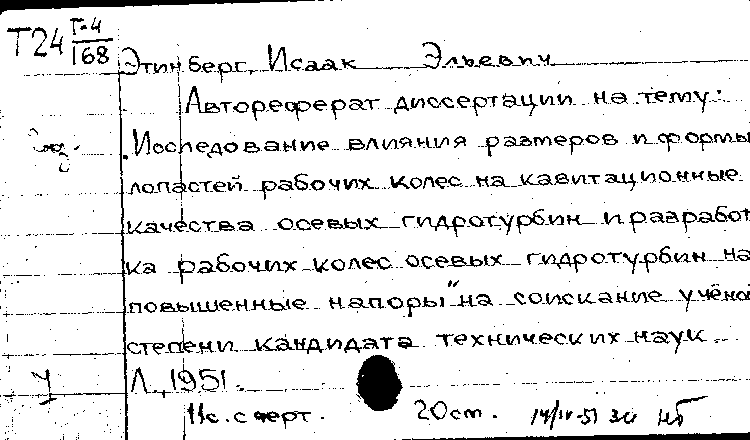 Т24 Г-4
168
Этинберг, Исаак Эльевич
Автореферат диссертации на тему:
„Исследование влияния размеров и формы
лопастей рабочих колес на кавитационные
качества осевых гидротурбин и разработ
ка рабочих колес осевых гидротурбин на
повышенные напоры" на соискание учёной
степени кандидата технических наук.
У Л., 1951.
11с. с черт. 20 см. 14/IV-51